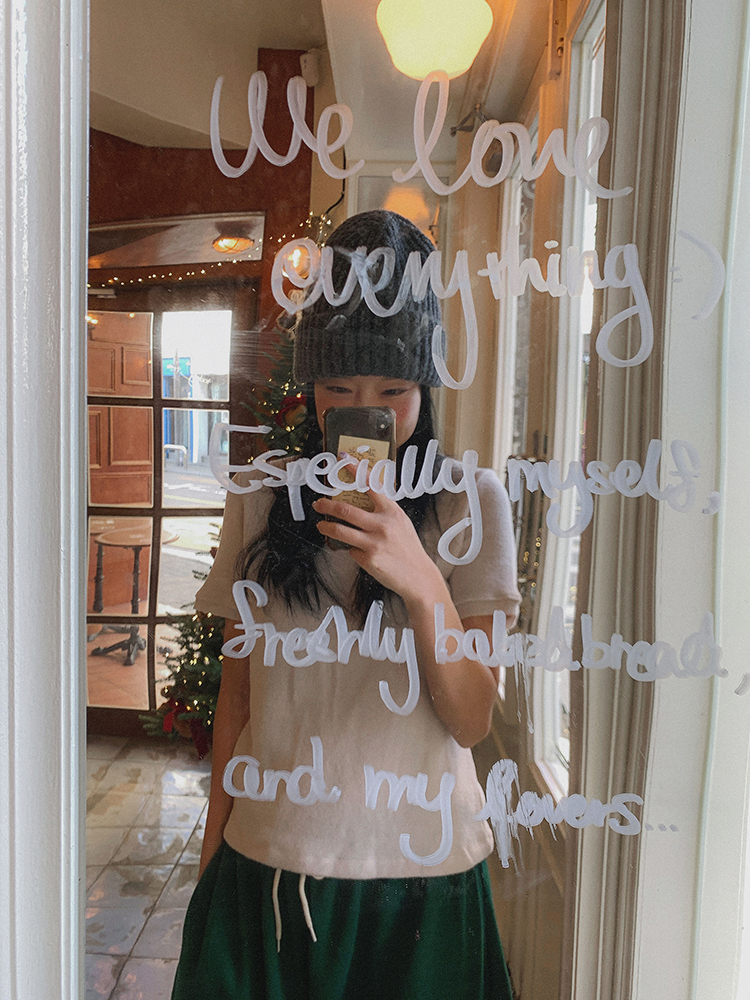 We love
everything :)
Especially myself,
freshly baked bread,
and my lovers...